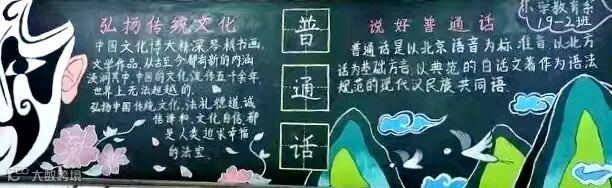 弘扬传统文化
中国文化博大精深琴棋书画
文学作品,从古至今都有新的内涵
浸润其中,中国的文化,流传五千余年
世界上无法超越的.
弘扬中国传统文化,法礼德道,诚
信谦和,文化自信,都
是人类追求幸福
的法宝.
普
通
话
说好普通话
普通话是以北京语音为标准音,以北方
话为基础方言,以典范的白话文著作为语法
规范的现代汉民族共同语.
小学教育系
19-2班
大数跨境